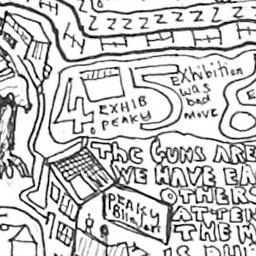 ZZZZZZZ
ZZZZZZZZZ
4.
EXHIB
PEAKY
5
EXHibition
was
bad
MOVE
8
THE GUNS ARE
WE HAVE EA
OTHERS
ATTEN
THE M
PEAKY
Blinder